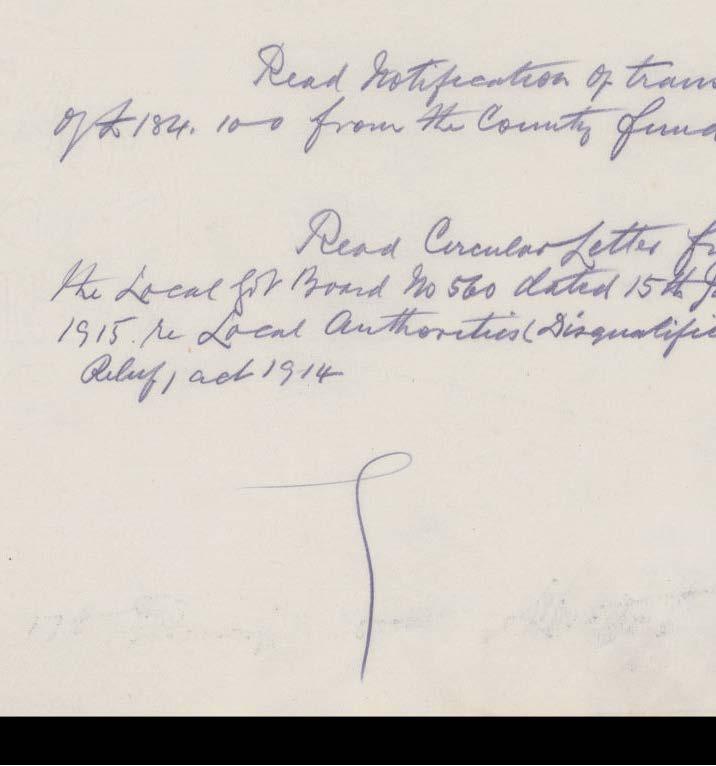 Read Notification of tran
of £184. 10-0 from the County Fund
Read Circular Letter f
the Local Govt Board No 560 dated 15th J
1915. re Local Authorities (Disqualific
Relief) act 1914